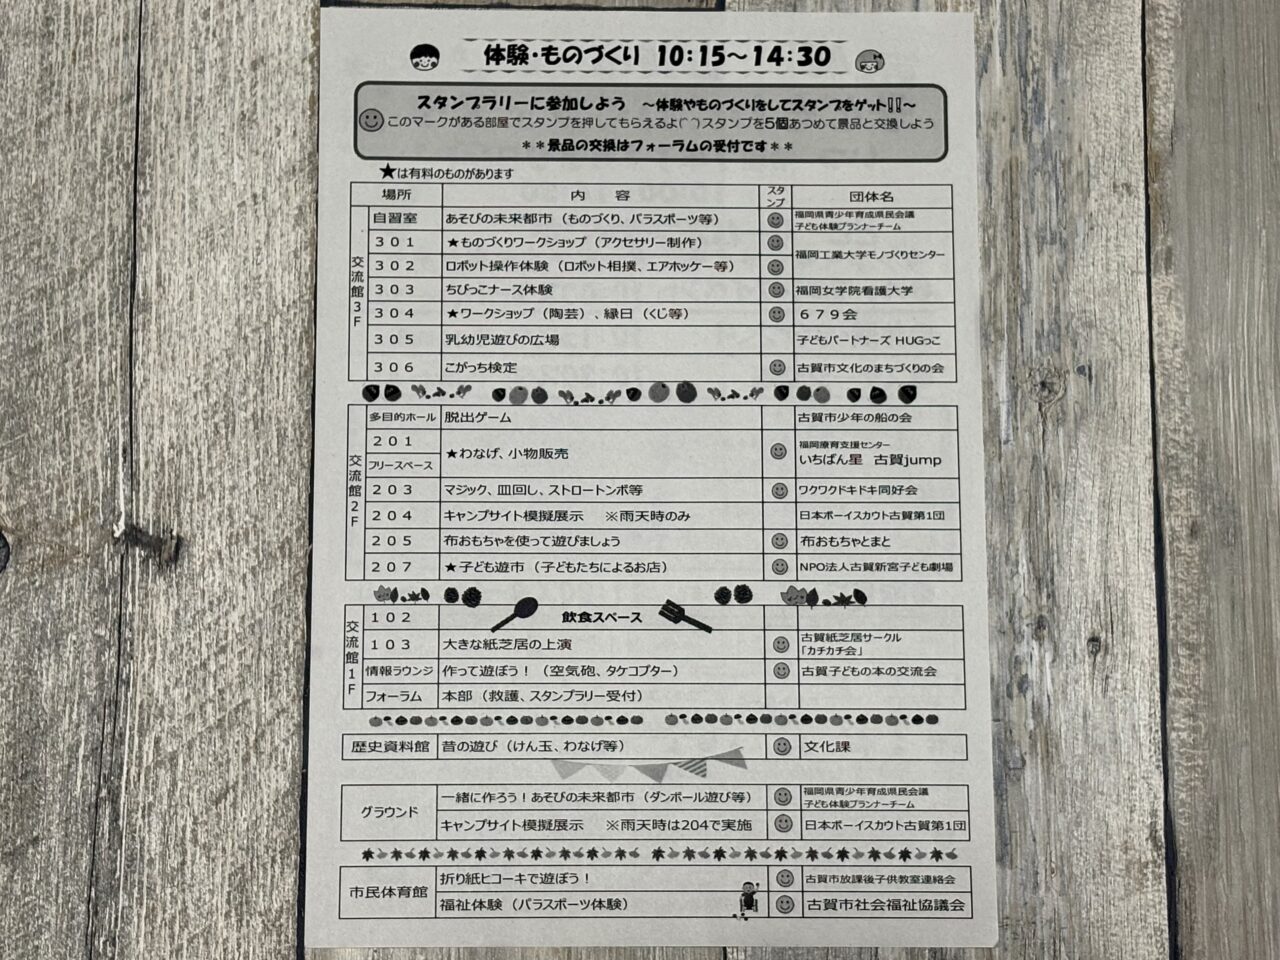 体験・ものづくり 10:15～14:30
スタンプラリーに参加しよう ～体験やものづくりをしてスタンプをゲット!!～
このマークがある部屋でスタンプを押してもらえるよ(^^)スタンプを5個あつめて景品と交換しよう
＊＊景品の交換はフォーラムの受付です＊＊
★は有料のものがあります
場所 内 容 スタンプ 団体名
交流館3F
自習室 あそびの未来都市（ものづくり、パラスポーツ等） 福岡県青少年育成県民会議 子ども体験プランナーチーム
301 ★ものづくりワークショップ（アクセサリー制作） 福岡工業大学モノづくりセンター
302 ロボット操作体験（ロボット相撲、エアホッケー等）
303 ちびっこナース体験 福岡女学院看護大学
304 ★ワークショップ（陶芸）、縁日（くじ等） 679会
305 乳幼児遊びの広場 子どもパートナーズ HUGっこ
306 こがっち検定 古賀市文化のまちづくりの会
交流館2F
多目的ホール 脱出ゲーム 古賀市少年の船の会
201 フリースペース ★わなげ、小物販売 福岡療育支援センター いちばん星 古賀jump
203 マジック、皿回し、ストロートンボ等 ワクワクドキドキ同好会
204 キャンプサイト模擬展示 ※雨天時のみ 日本ボーイスカウト古賀第1団
205 布おもちゃを使って遊びましょう 布おもちゃとまと
207 ★子ども遊市（子どもたちによるお店） NPO法人古賀新宮子ども劇場
交流館1F
102 飲食スペース
103 大きな紙芝居の上演 古賀紙芝居サークル「カチカチ会」
情報ラウンジ 作って遊ぼう！（空気砲、タケコプター） 古賀子どもの本の交流会
フォーラム 本部（救護、スタンプラリー受付）
歴史資料館 昔の遊び（けん玉、わなげ等） 文化課
グラウンド
一緒に作ろう！あそびの未来都市（ダンボール遊び等） 福岡県青少年育成県民会議 子ども体験プランナーチーム
キャンプサイト模擬展示 ※雨天時は204で実施 日本ボーイスカウト古賀第1団
市民体育館
折り紙ヒコーキで遊ぼう！ 古賀市放課後子供教室連絡会
福祉体験（パラスポーツ体験） 古賀市社会福祉協議会